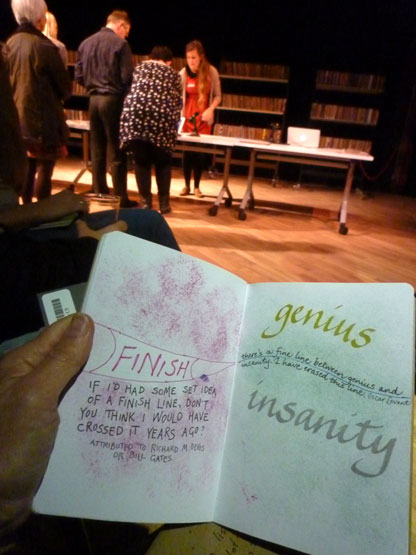 FINISH
IF I'D HAD SOME SET IDEA
OF A FINISH LINE, DON'T
YOU THINK I WOULD HAVE
CROSSED IT YEARS AGO?
ATTRIBUTED TO RICHARD M. DEVOS
OR BILL GATES
genius
there's a fine line between genius and
insanity. I have erased this line. Oscar Levant
insanity